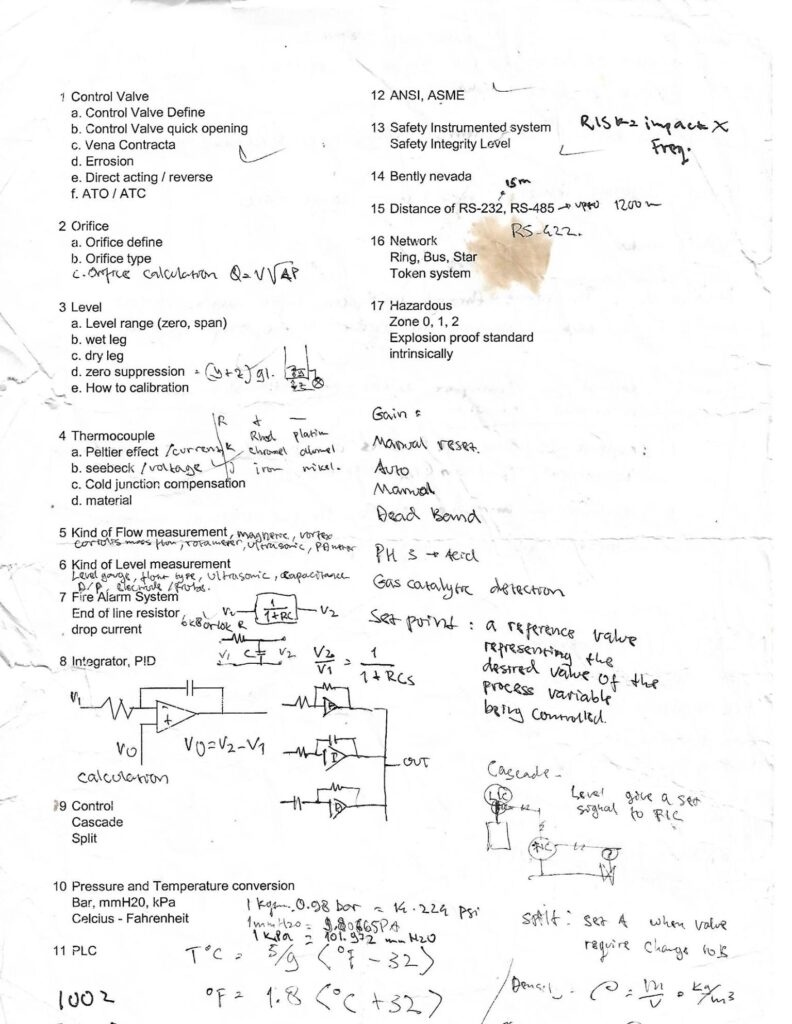 1 Control Valve
a. Control Valve Define
b. Control Valve quick opening
c. Vena Contracta
d. Errosion
e. Direct acting / reverse
f. ATO / ATC
2 Orifice
a. Orifice define
b. Orifice type
c. Orifice calculation Q=V√ΔP
3 Level
a. Level range (zero, span)
b. wet leg
c. dry leg
d. zero suppression = (y+z) gl.
e. How to calibration
R + —
4 Thermocouple Rhod platin
a. Peltier effect /current K chromel alumel
b. seebeck /voltage J iron nikel.
c. Cold junction compensation
d. material
5 Kind of Flow measurement, magnetic, vortex
coriolis mass flow, rotameter, ultrasonic, PD meter
6 Kind of Level measurement
Level gauge, float type, ultrasonic, capacitance
D/P, electrode / Probs.
7 Fire Alarm System
End of line resistor, 6k8 or 10k R
drop current
V2 1/1+RC V2
V1 C V2 V2/V1 = 1/1+RCS
8 Integrator, PID
V1
+
VO VO=V2-V1
calculation
P
I
D
OUT
9 Control
Cascade
Split
10 Pressure and Temperature conversion
Bar, mmH20, kPa 1 kgcm. 0.98 bar = 14.224 psi
Celcius - Fahrenheit 1mmH20 = 9.80665PA
1 KPa = 101.972 mmH2O
11 PLC T°C = 5/9 (°F - 32)
1002 °F = 1.8 (°C + 32)
12 ANSI, ASME
13 Safety Instrumented system RISK = impact X
Safety Integrity Level Freq.
14 Bently nevada
15m
15 Distance of RS-232, RS-485 → upto 1200m
RS-422.
16 Network
Ring, Bus, Star
Token system
17 Hazardous
Zone 0, 1, 2
Explosion proof standard
intrinsically
Gain :
Manual reset.
Auto
Manual
Dead Band
PH 3 → Acid
Gas catalytic detection
Set point : a reference value
representing the
desired value of the
process variable
being controlled.
Cascade -
LIC Level give a set
signal to FIC
FIC
split : set A when valve
require change 10%
Densi - ρ = m/v = kg/m3